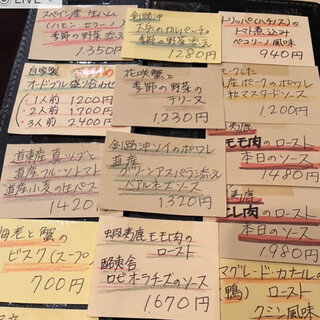 スペイン産 生ハム
(ハモン・セラーノ)
季節の野菜添え
1350円
釧路沖
季節の野菜添え
1280円
トリッパ(ハチノス)の
トマト煮込み
ペコリーノ風味
940円
自家製
オードブル盛り合わせ
・1人前 1200円
・2人前 1700円
・3人前 2400円
花咲蟹と
季節の野菜の
テリーヌ
1,230円
産ポークのポワレ
粒マスタードソース
1,200円
道東産 真ツブと
道産フルーツトマト
道産小麦の生パスタ
1420
釧路沖ソイのポワレ
道産
グリーンアスパラ添え
ベアルネーズソース
1320円
モモ肉の
ロースト
本日のソース
1480円
海老と蟹の
ビスク(スープ)
700円
蝦夷鹿モモ肉の
ロースト
酪恵舎
ロビオーラチーズのソース
1,670円
ロースト
本日のソース
1,980円
マグレ・ド・カナールの
(鴨) ロースト
クミン風味